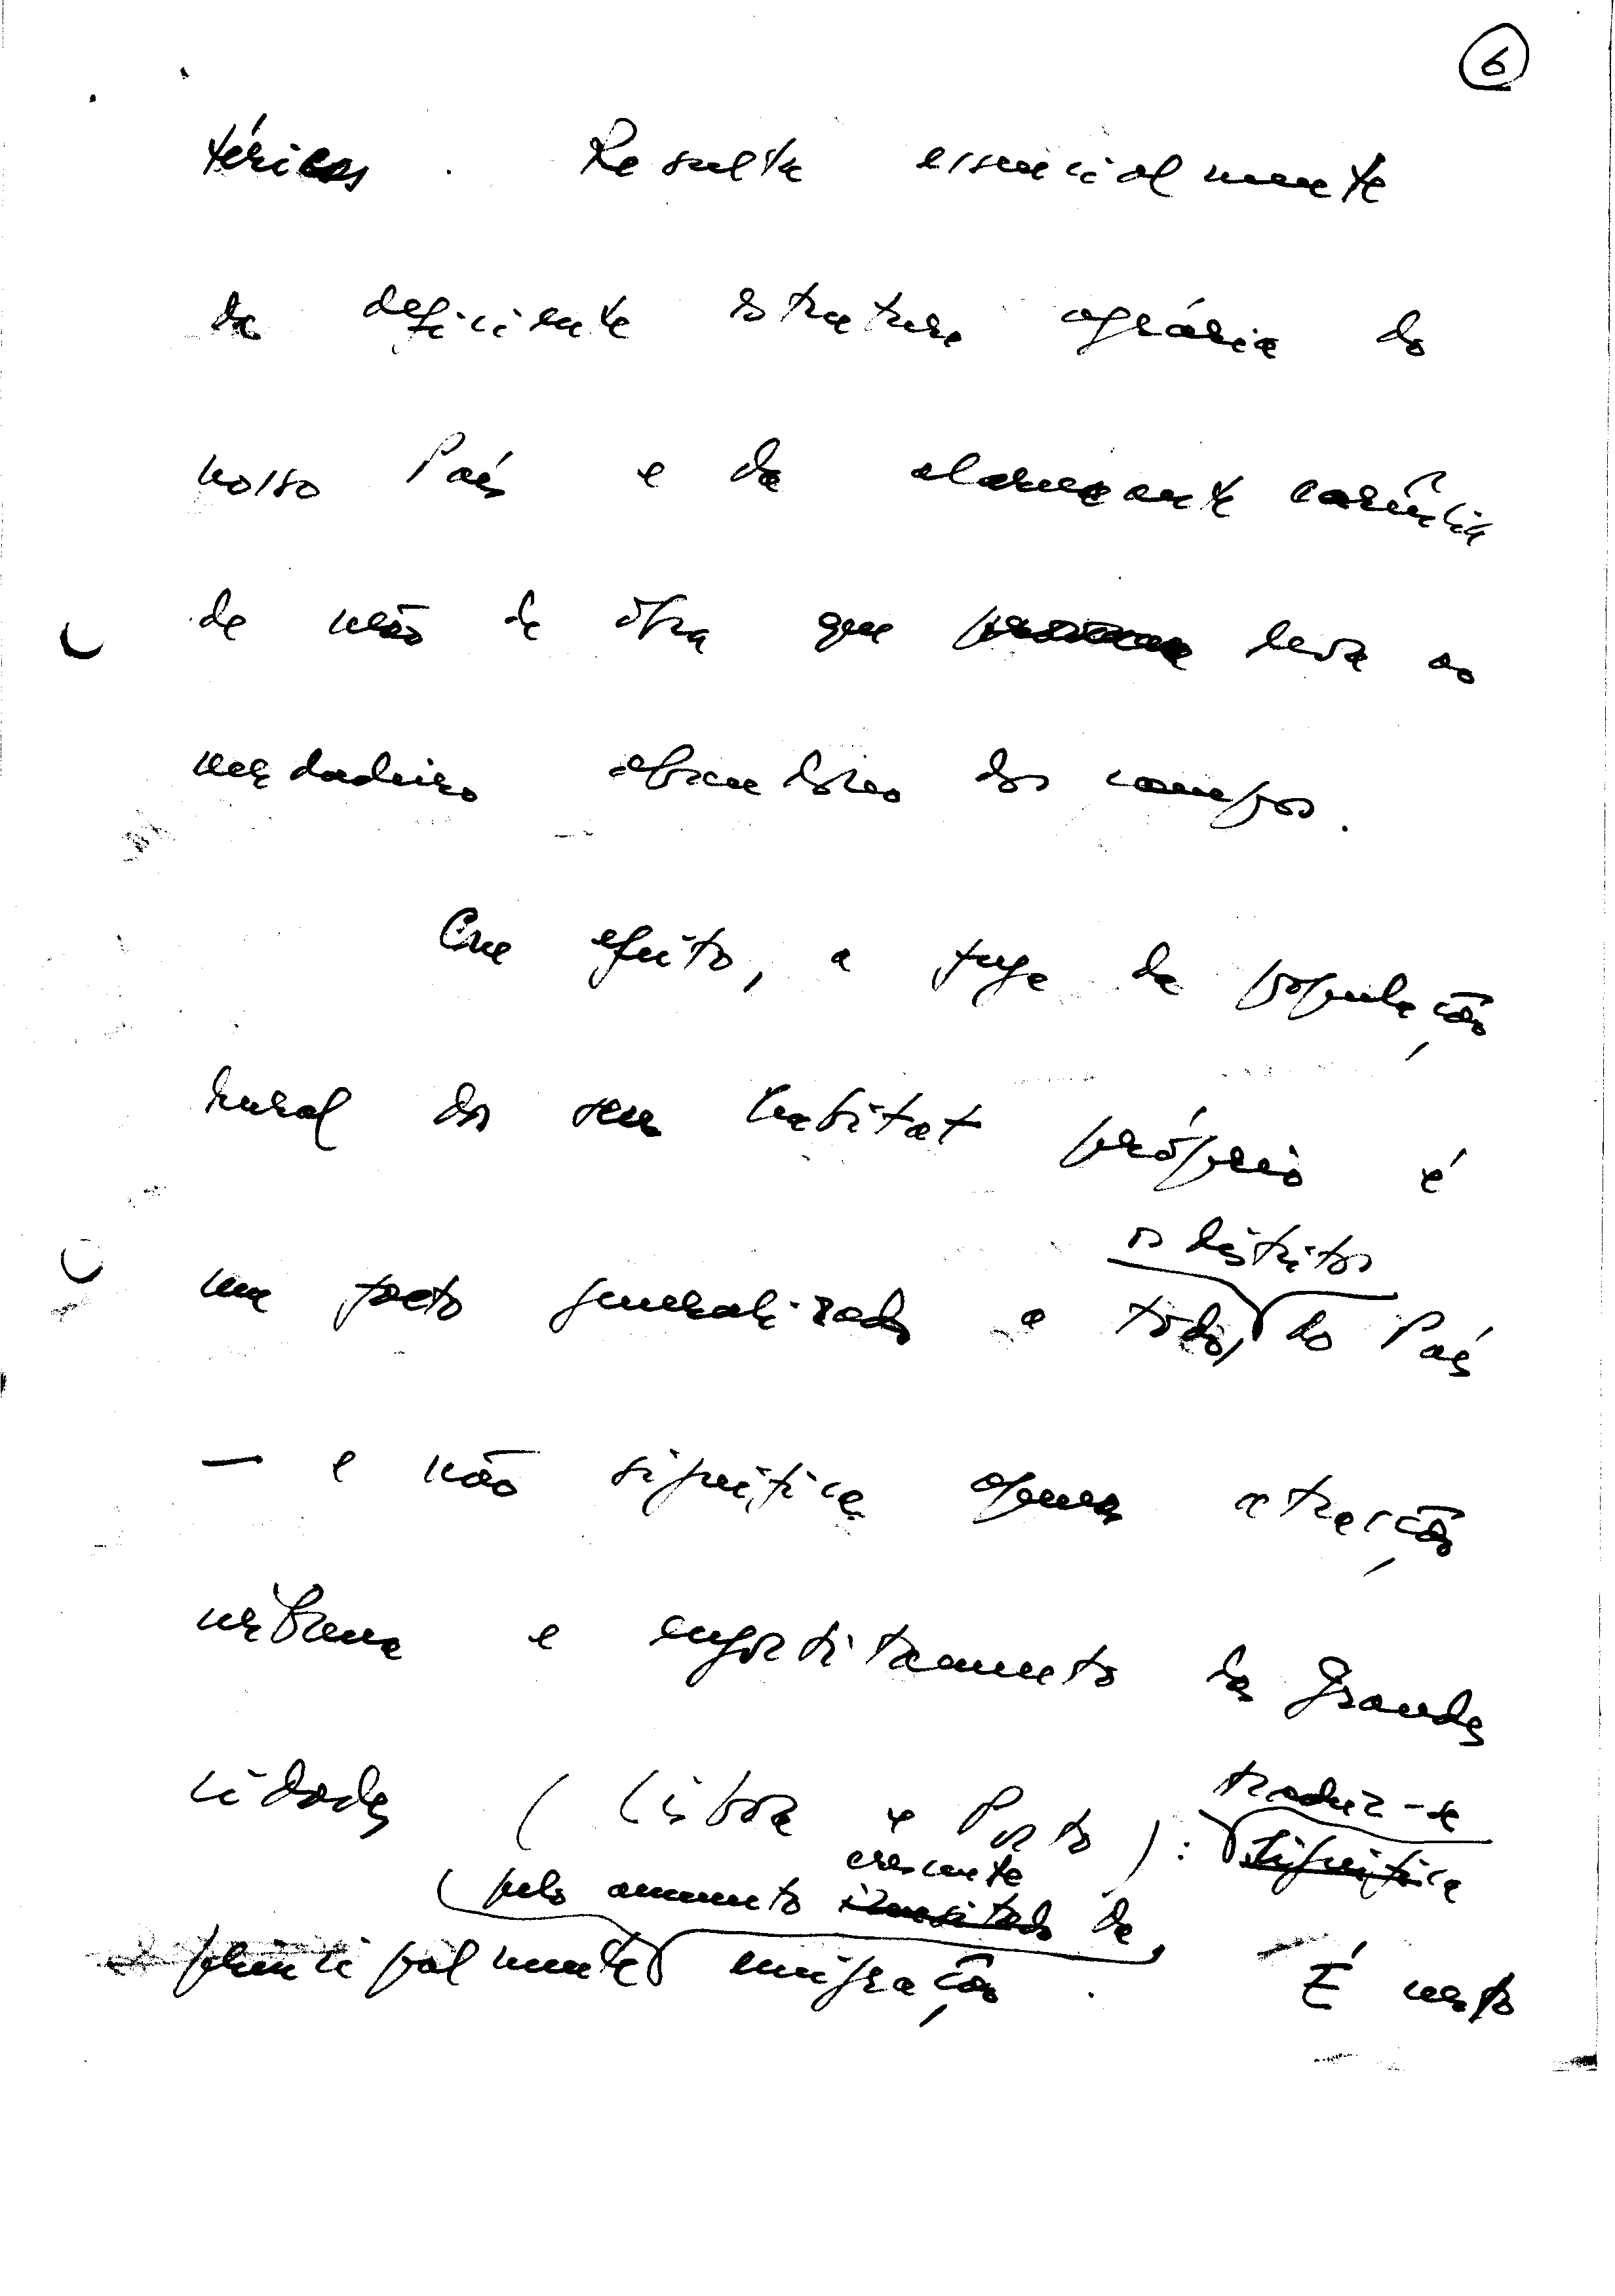 6
téricos. Resulta essencialmente
da deficiente estrutura agrária do
nosso País e da alarmante carência
de mão de obra que leva ao
verdadeiro abandono dos campos.
Com efeito, a fuga da população
rural do seu habitat próprio é
os distritos
um facto generalizado a todos do País
— e não significa apenas atracção
urbana e engorgitamento das grandes
traduz-se
cidades (Lisboa e Porto): significa
crescente
pelo aumento inusitado da
principalmente emigração. É nesta